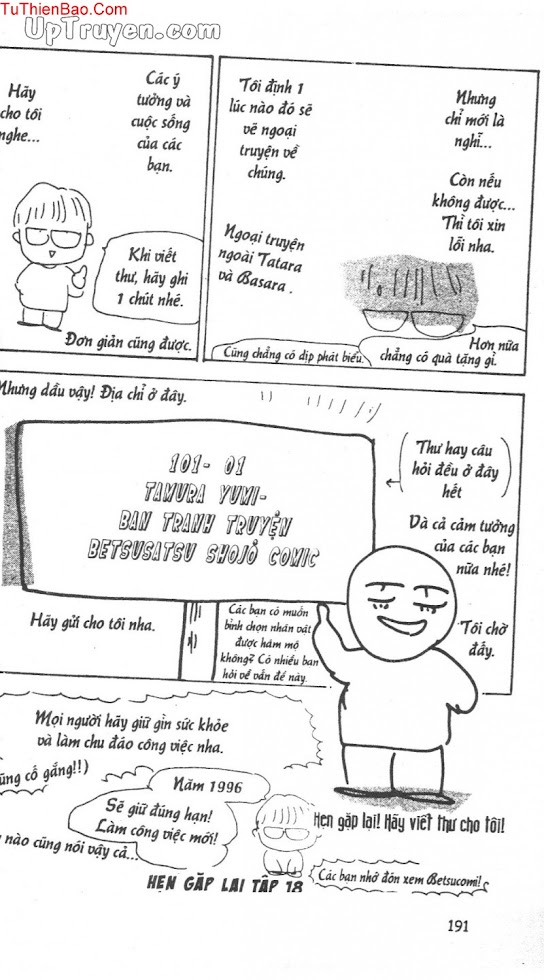 TuThienBao.Com
UpTruyen.com
Hãy
cho tôi
nghe...
Các ý
tưởng và
cuộc sống
của các
bạn.
Khi viết
thư, hãy ghi
1 chút nhé.
Đơn giản cũng được.
Tôi định 1
lúc nào đó sẽ
vẽ ngoại
truyện về
chúng.
Ngoại truyện
ngoài Tatara
và Basara.
Nhưng
chỉ mới là
nghĩ...
Còn nếu
không được...
Thì tôi xin
lỗi nha.
Cũng chẳng có dịp phát biểu.
Hơn nữa
chẳng có quà tặng gì.
Nhưng dầu vậy! Địa chỉ ở đây.
101- 01
TAMURA YUMI-
BAN TRANH TRUYỆN
BETSUSATSU SHOJO COMIC
Thư hay câu
hỏi đều ở đây
hết
Và cả cảm tưởng
của các bạn
nữa nhé!
Hãy gửi cho tôi nha.
Các bạn có muốn
bình chọn nhân vật
được hâm mộ
không? Có nhiều bạn
hỏi về vấn đề này.
Tôi chờ
đấy.
Mọi người hãy giữ gìn sức khỏe
và làm chu đáo công việc nha.
cố gắng!!)
Năm 1996
Sẽ giữ đúng hạn!
Làm công việc mới!
nào cũng nói vậy cả...
Hẹn gặp lại! Hãy viết thư cho tôi!
HẸN GẶP LẠI TẬP 18
Các bạn nhớ đón xem Betsucomi!
191